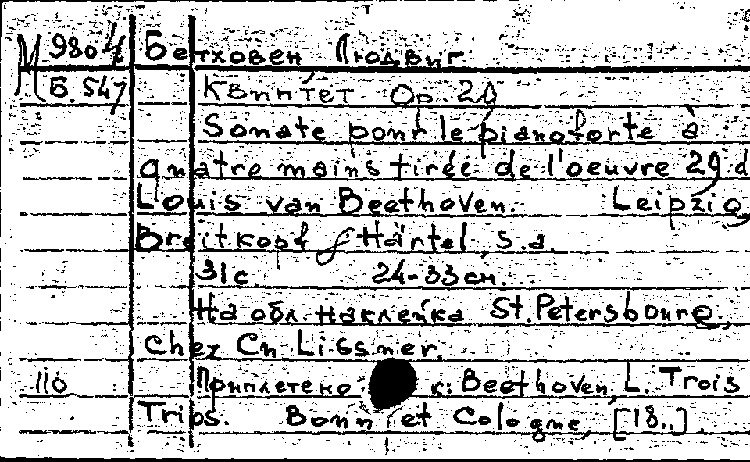 М 980 4 Бетховен Людвиг
Б. 547 Квинтет Op. 29
Sonate pour le pianoforte à
quatre mains tirée de l'oeuvre 29 d
Louis van Beethoven. Leipzig,
Breitkopf & Härtel, s.a.
31 с. 24-33 см.
На обл. наклейка St. Petersbourg,
chez Ch Lissner.
110 Приплетено к: Beethoven, L. Trois
Trios. Bonn et Cologne, [18..]